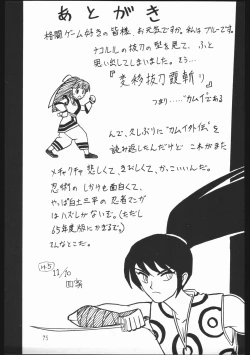 あとがき
格闘ゲーム好きの皆様 お元気ですか。私はブルーです。
ナコルルの抜刀の型を見て、ふと
思い出してしまいました。そう…
『変移抜刀霞斬り』
つまり……“カムイ”である
んで、久しぶりに“カムイ外伝”を
読み返したんだけど これがまた
メチャクチャ 悲しくて、さびしくて、かっこいいんだ。
忍術の しかりも面白くて、
やっぱ白土三平の 忍者マンガ
はハズレがないぞ。(ただし
65年度版にかぎるぞ)
そんなとこだ。
11/20
75